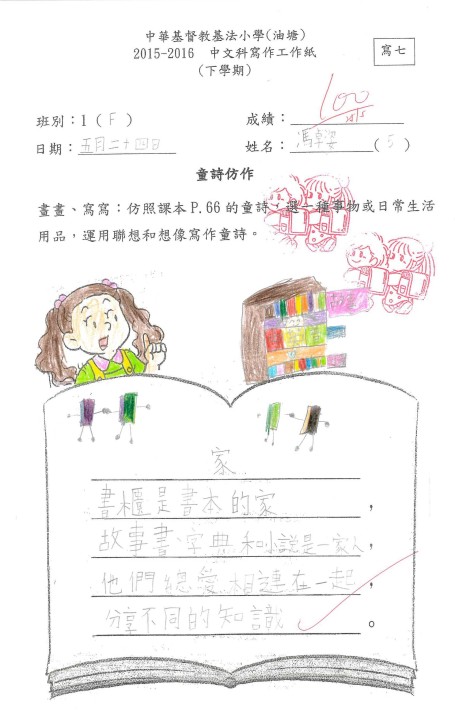 中華基督教基法小學(油塘)
2015-2016 中文科寫作工作紙
(下學期)
寫七
班別：1( F )
成績：100
日期：五月二十四日
姓名：馮卓姿( 5 )
童詩仿作
畫畫、寫寫：仿照課本 P.66 的童詩，選一種事物或日常生活
用品，運用聯想和想像寫作童詩。
家
書櫃是書本的家，
故事書、字典和小說是一家人，
他們總愛相連在一起，
分享不同的知識。